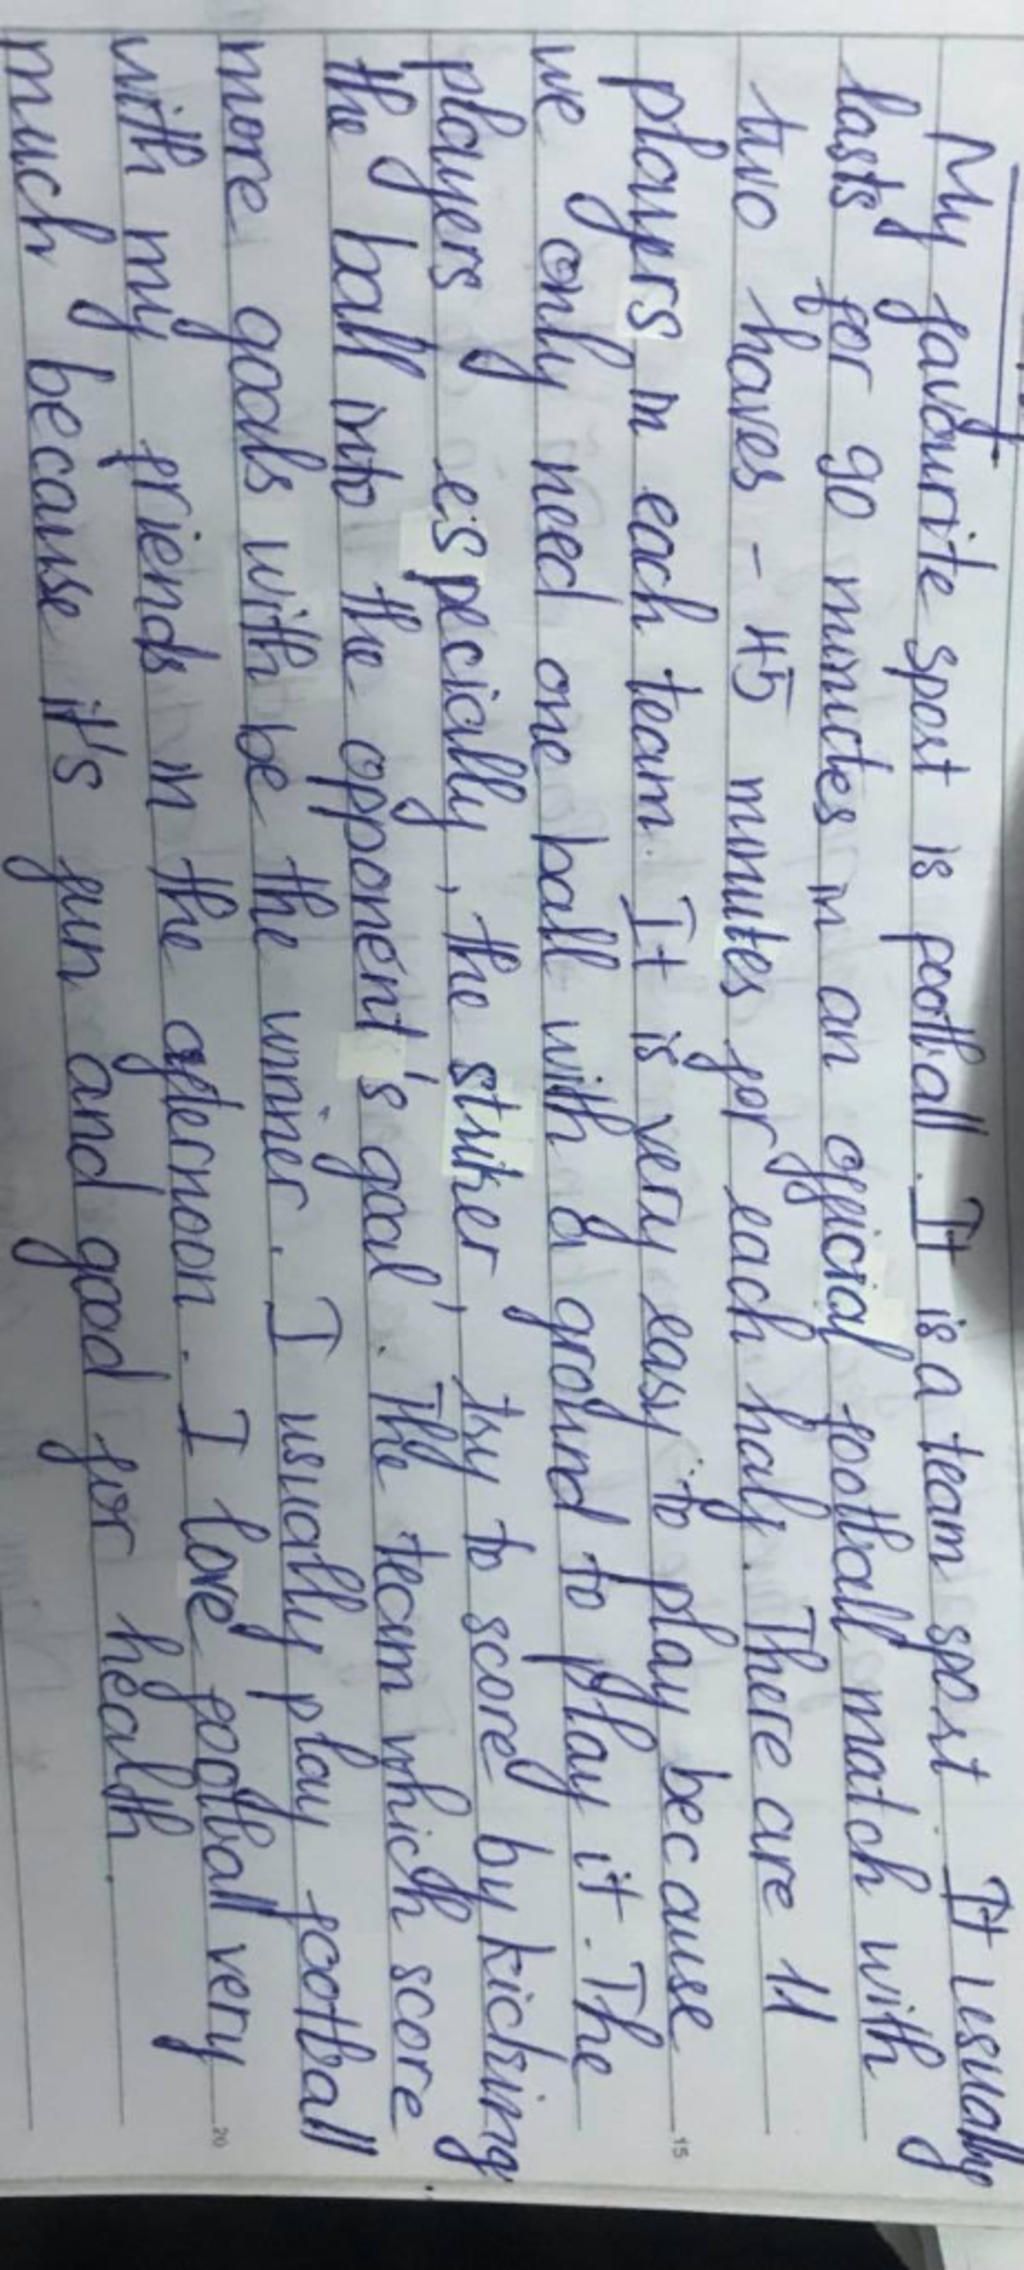 My favourite sport is football. It is a team sport. It usually
lasts for 90 minutes in an official football match with
two haves - 45 minutes for each half. There are 11
players in each team. It is very easy to play because
we only need one ball with a ground to play it. The
players especially, the striker, try to score by kicking
the ball into the opponent's goal'. The team which score
more goals with be the winner. I usually play football
with my friends in the afternoon. I love football very
much because it's fun and good for health.
15
20